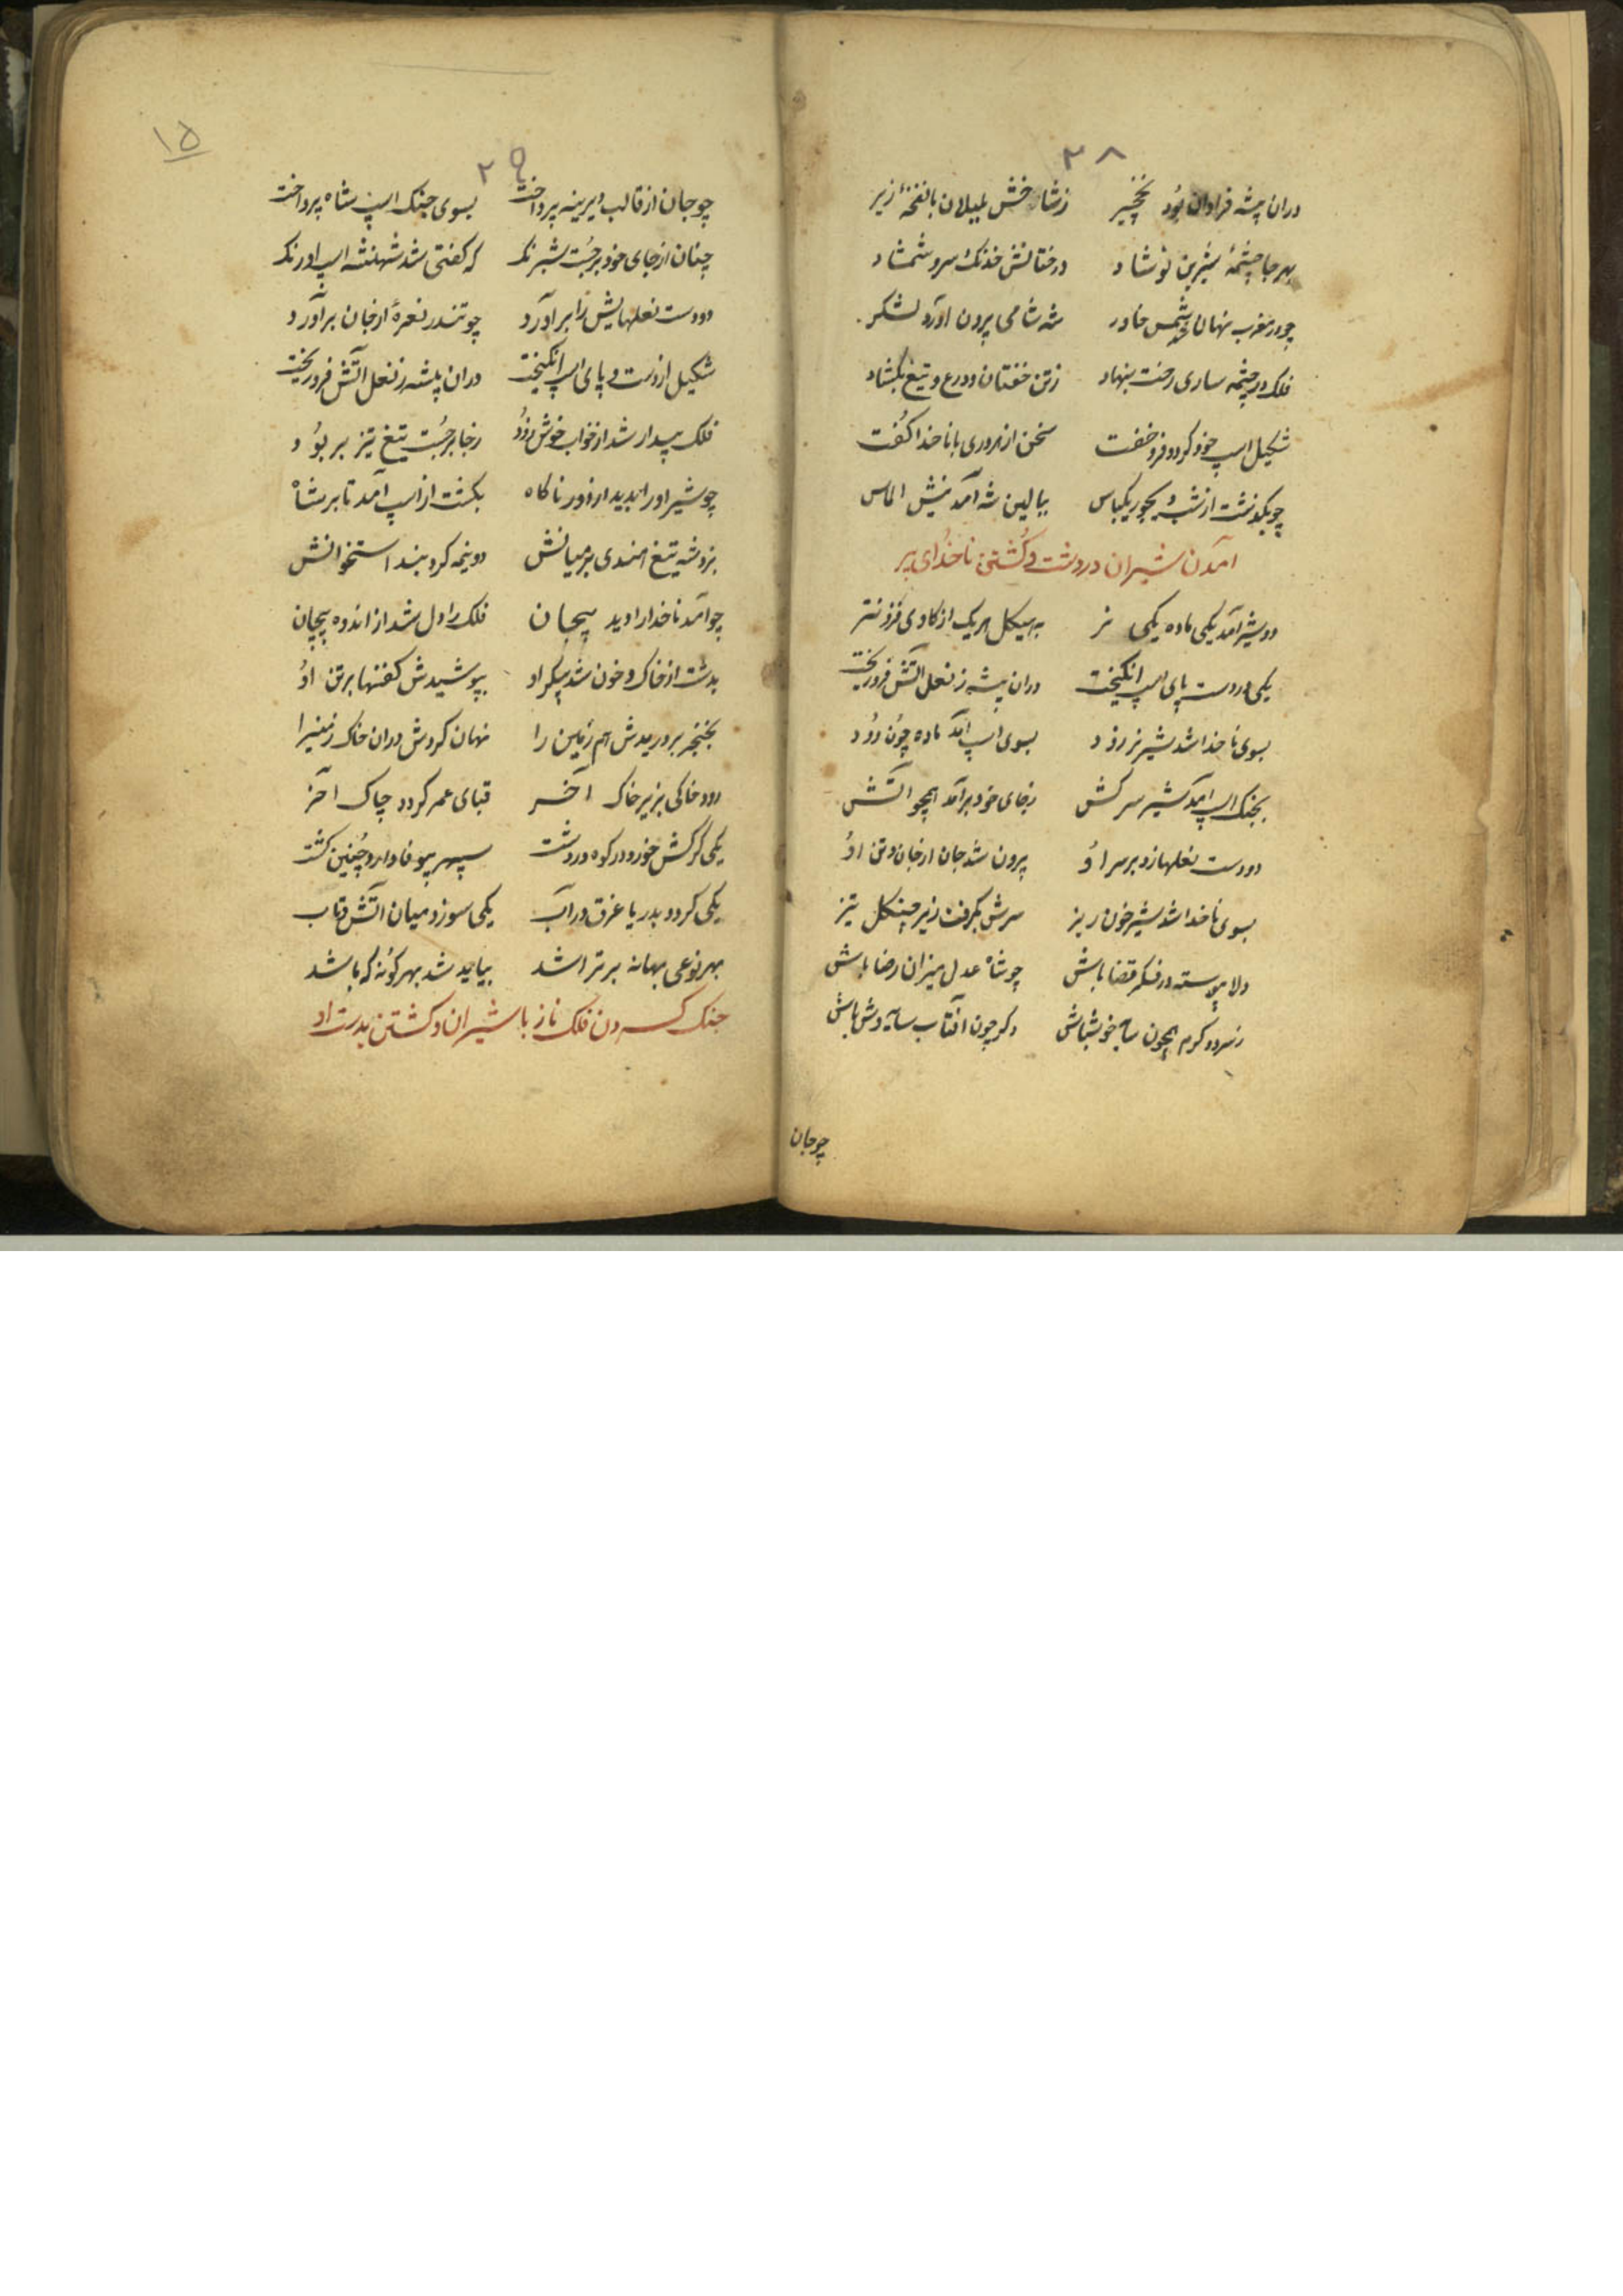 ۲۸
دران بیشه فراوان بود نخچیر زشاخش بلبلان با نغمهٔ زیر
بهر جا چشمهٔ شیرین نوشاد درختانش خدنک سرو شمشاد
چو در مغرب نهان شد شمس خاور شه شامی برون آورد لشکر
فلک در چشمه ساری رخت بنهاد زتن خفتان و درع و تیغ بکشاد
شکیل اسپ خود کرد و فرو خفت سخن از هر دری با ناخدا کفت
چو بکذشت از شب دیجور یکپاس ببالین شه آمد نیش الماس
آمدن شیران در دشت و کشتن ناخدای پیر
دو شیر آمد یکی ماده یکی نر به هیکل هر یک از کاوی فزونتر
یکی در دست پای اسپ انکیخت دران بیشه ز نعل آتش فرو ریخت
بسوی ناخدا شد شیر نر زود بسوی اسپ آمد ماده چون دود
بجنک اسپ آمد شیر سرکش زجای خود برآمد همچو آتش
دو دست نعلها زد بر سر او برون شد جان از جان و تن او
بسوی ناخدا شد شیر خون ریز سرش بکرفت زیر چنکل تیز
دلا پیوسته در فکر قضا باش چو شاه عدل میزان رضا باش
ز سرد و کرم همچون سایه خوشباش دکر چون افتاب سایه وش باش
چو جان
۱۵
۲۹
چو جان از قالب دیرینه پرداخت بسوی جنک اسپ شاه پرداخت
چنان از جای خود برجست شبرنک که کفتی شد شهنشه اسپ اورنک
دو دست نعلهایش را برآورد چو تندر نعرهٔ از جان برآورد
شکیل از دست و پای اسپ انکیخت دران بیشه ز نعل آتش فرو ریخت
فلک بیدار شد از خواب خوش زود زجا برجست تیغ تیز بربود
چو شیر او را بدید از دور ناکاه بکشت از اسپ آمد تا بر شاه
بزد شه تیغ هندی بر میانش دو نیمه کرد بند استخوانش
چو آمد ناخدا را دید بیجان فلک را دل شد از اندوه پیچان
بدشت از خاک و خون شد پیکر او بپوشیدش کفنها بر تن او
بخنجر بر دریدش هم زمین را نهان کردش دران خاک زمین را
رود خاکی بزیر خاک آخر قبای عمر کردد چاک آخر
یکی کرکش خورد در کوه و در دشت سپهر بیوفا دارد چنین کشت
یکی کردد بدریا غرق در آب یکی سوزد میان آتش و تاب
بهر نوعی بهانه بر تراشد بباید شد بهر کونه که باشد
جنک کردن فلک ناز با شیران و کشتن بدست او